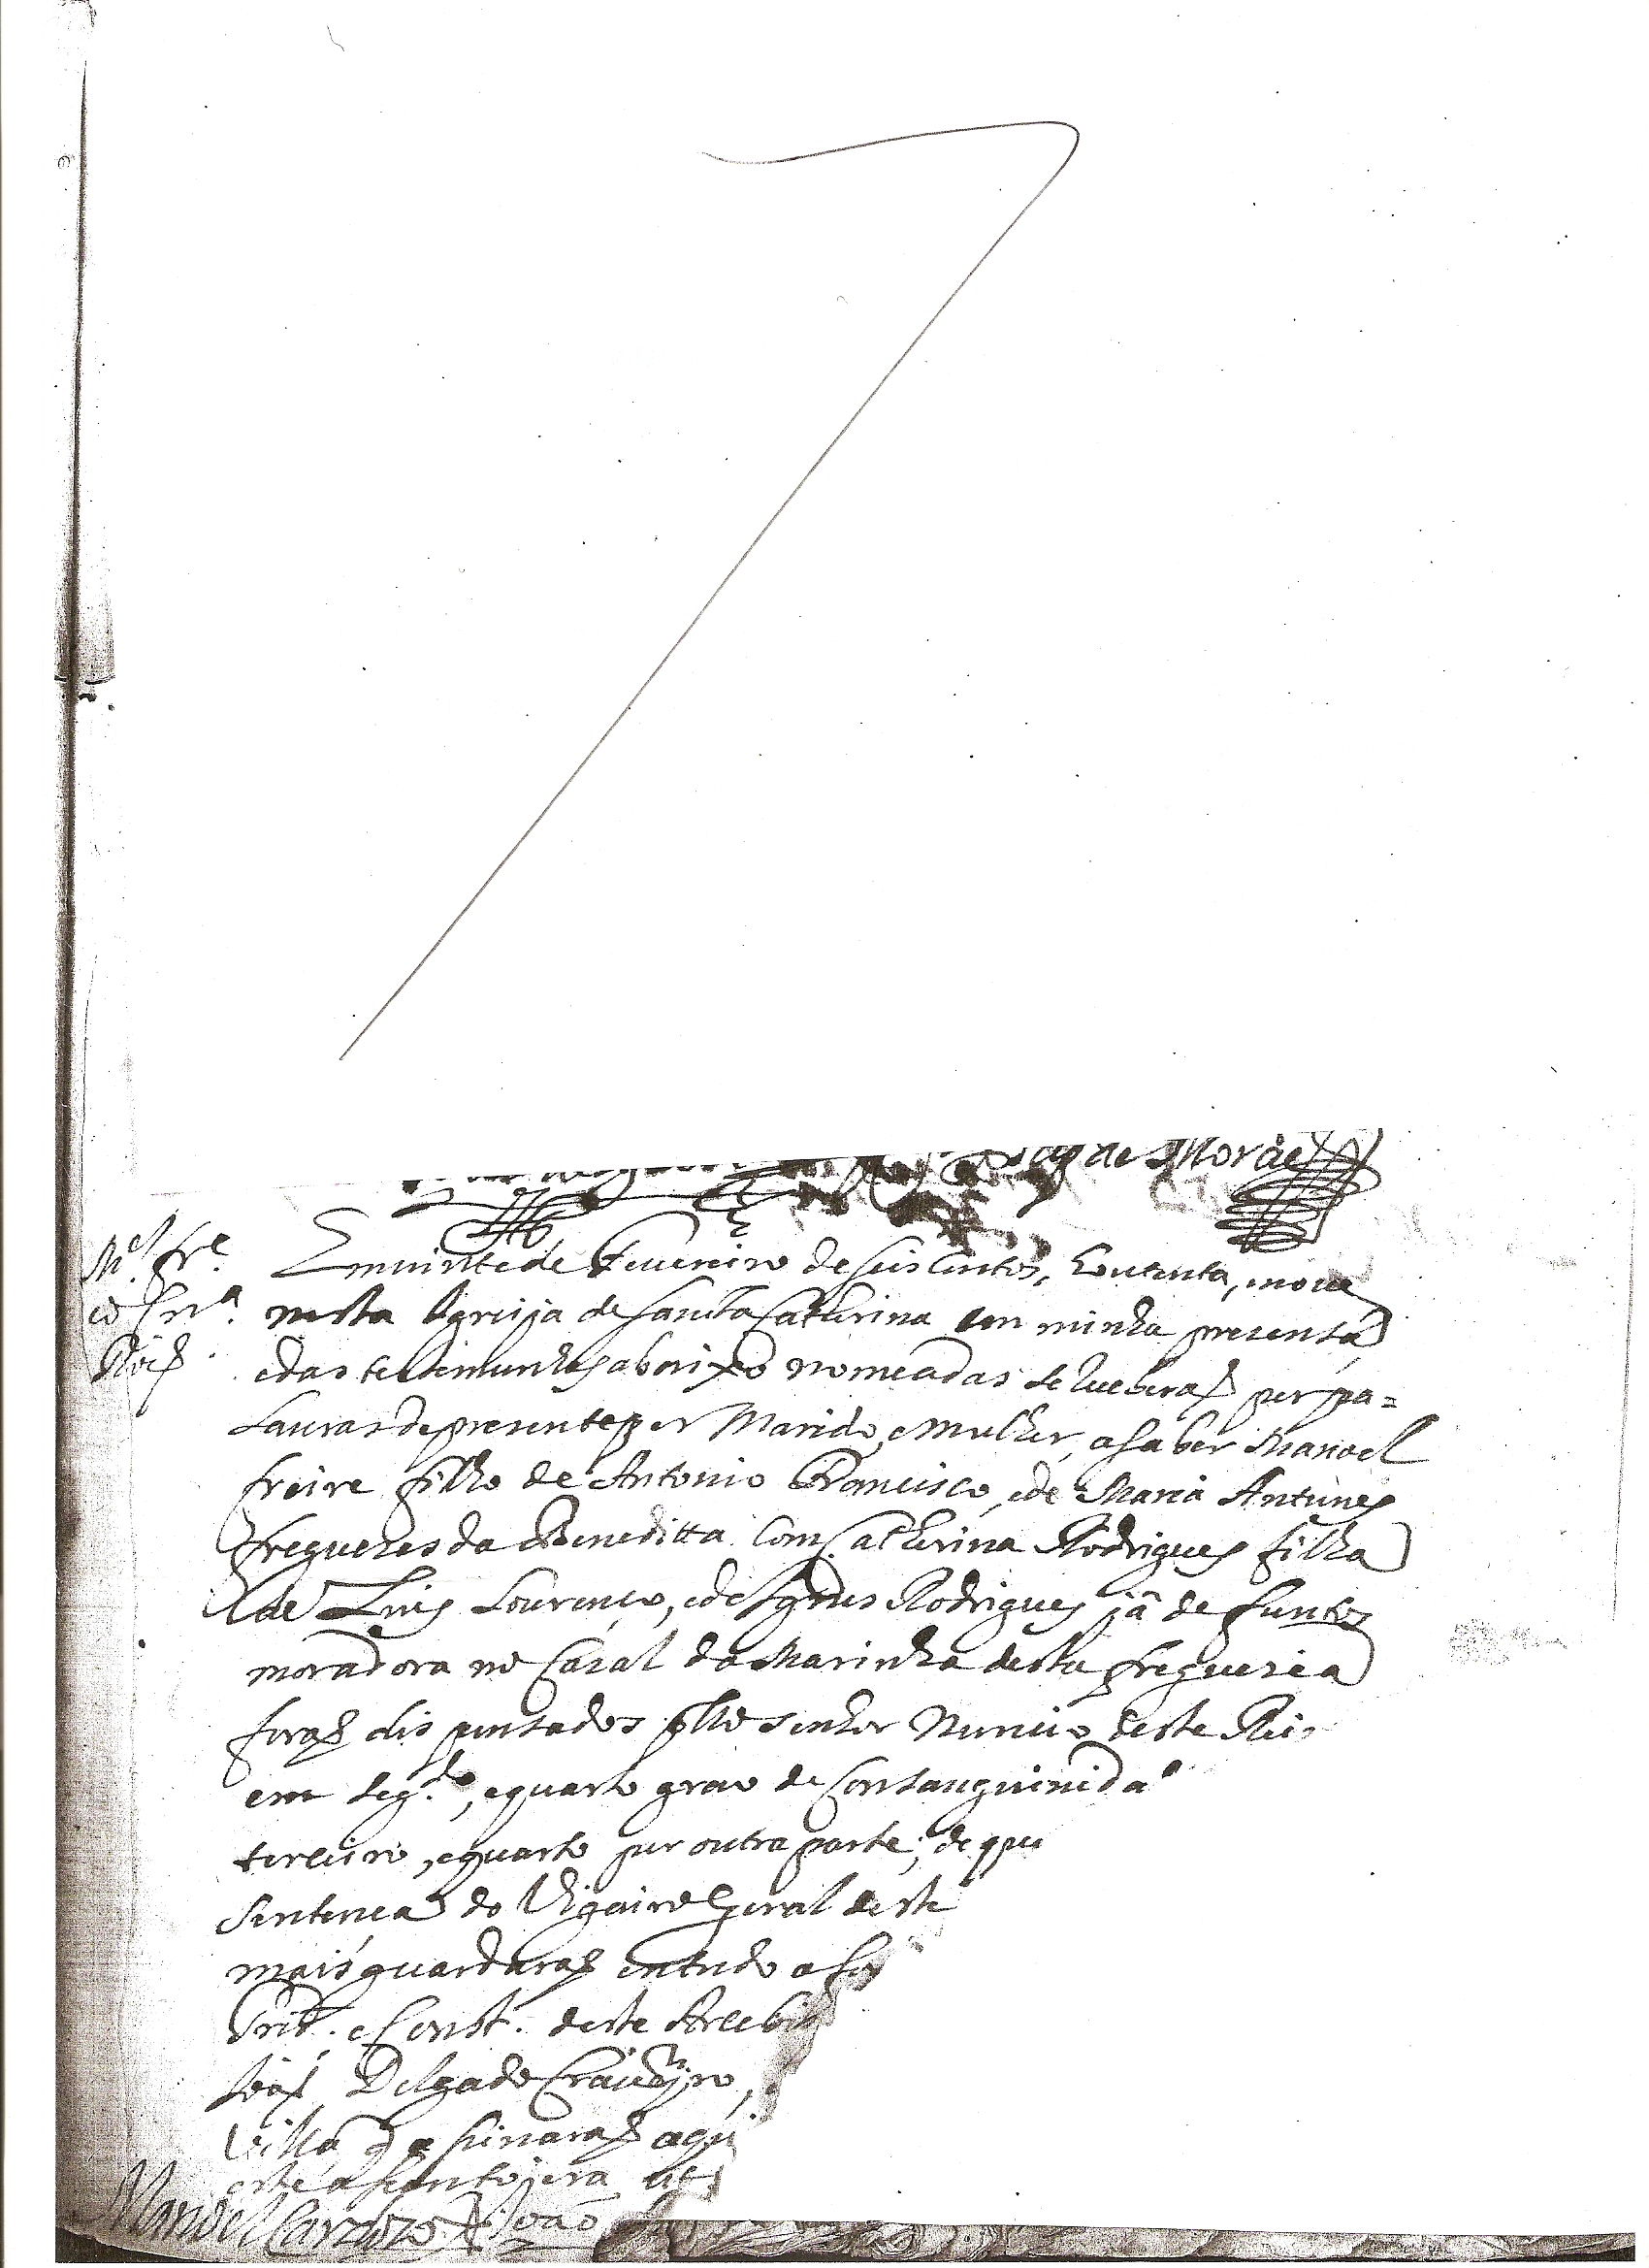 de Moraes
M.el fr.e
cõ Cn.a
Roiz
Em uinte de Feuereiro de seis centos, Outenta, enoue
nesta Igreija de Santa Catherina em minha presensa
edas testimunhas abaixo nomeadas se receberaõ per pa=
lauras de presente per Marido, e Mulher, a saber Manoel
freire filho de Antonio Francisco, e de Maria Antunes
freguezes da Benedítta. Com Catherina Rodrigues filha
de Luis Lourenço, e de Ignes Rodrigues já defuntos
moradora no Casal da Marinha desta freguesia
foraõ dispensados pllo senhor Nuncio deste Rei
em seg.do, equarto grao de Consanguinida
terceiro, equarto per outra parte; de que
Sentenca do Vigairo Geral deste
mais guardaraõ entudo a for
Trid. e Const. deste Arcebis
Joaõ Delgado Craueyro,
Villa q asinaraõ aqui
este asento, era ut
Manoel Cardozo João